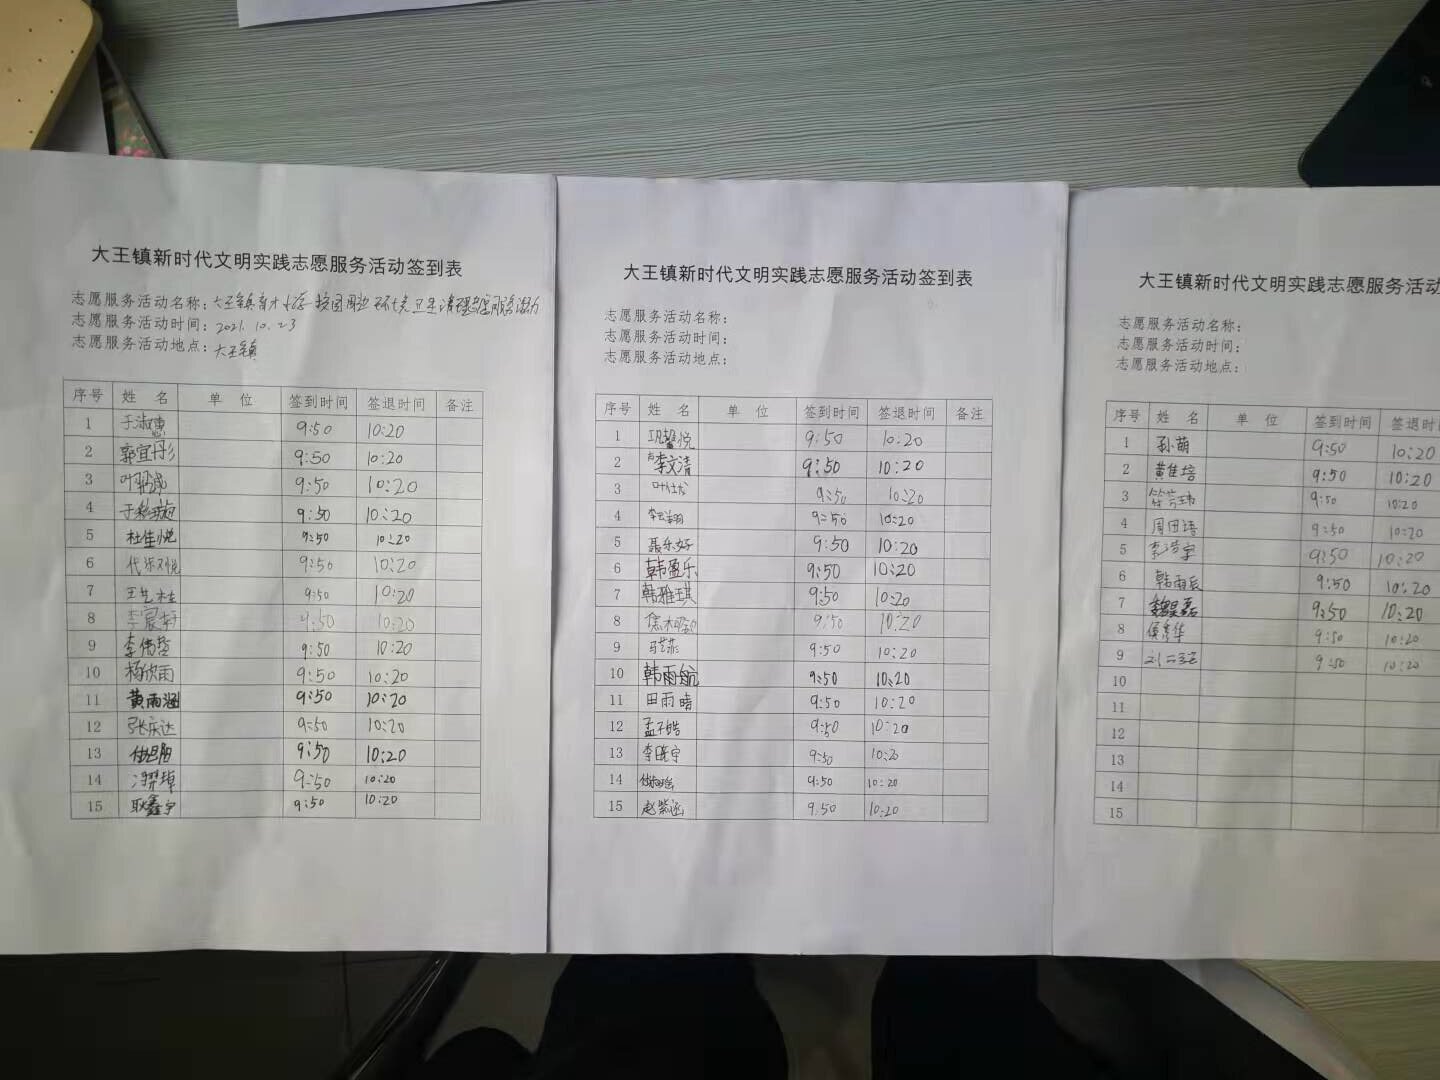 大王镇新时代文明实践志愿服务活动签到表
志愿服务活动名称：大王镇育才小学校园周边环境卫生清理志愿服务活动
志愿服务活动时间：2021.10.23
志愿服务活动地点：大王镇
序号 姓 名 单 位 签到时间 签退时间 备注
1 于淑惠 9:50 10:20
2 郭宜彤 9:50 10:20
3 叶 9:50 10:20
4 于 9:50 10:20
5 杜佳悦 9:50 10:20
6 代乐悦 9:50 10:20
7 王艺桂 9:50 10:20
8 李宸 9:50 10:20
9 李倩哲 9:50 10:20
10 杨欣雨 9:50 10:20
11 黄雨涵 9:50 10:20
12 张庆达 9:50 10:20
13 9:50 10:20
14 9:50 10:20
15 耿鑫宇 9:50 10:20
大王镇新时代文明实践志愿服务活动签到表
志愿服务活动名称：
志愿服务活动时间：
志愿服务活动地点：
序号 姓 名 单 位 签到时间 签退时间 备注
1 巩馨悦 9:50 10:20
2 李文清 9:50 10:20
3 叶仕龙 9:50 10:20
4 李 9:50 10:20
5 聂乐好 9:50 10:20
6 韩盈乐 9:50 10:20
7 韩雅琪 9:50 10:20
8 9:50 10:20
9 马艺菲 9:50 10:20
10 韩雨航 9:50 10:20
11 田雨晴 9:50 10:20
12 孟子皓 9:50 10:20
13 李晓宇 9:50 10:20
14 9:50 10:20
15 赵紫涵 9:50 10:20
大王镇新时代文明实践志愿服务活动
志愿服务活动名称：
志愿服务活动时间：
志愿服务活动地点：
序号 姓 名 单 位 签到时间 签退时
1 孙萌 9:50 10:20
2 黄佳培 9:50 10:20
3 9:50 10:20
4 周田语 9:50 10:20
5 李浩宇 9:50 10:20
6 韩雨辰 9:50 10:20
7 魏昊磊 9:50 10:20
8 侯彦华 9:50 10:20
9 9:50 10:20
10
11
12
13
14
15